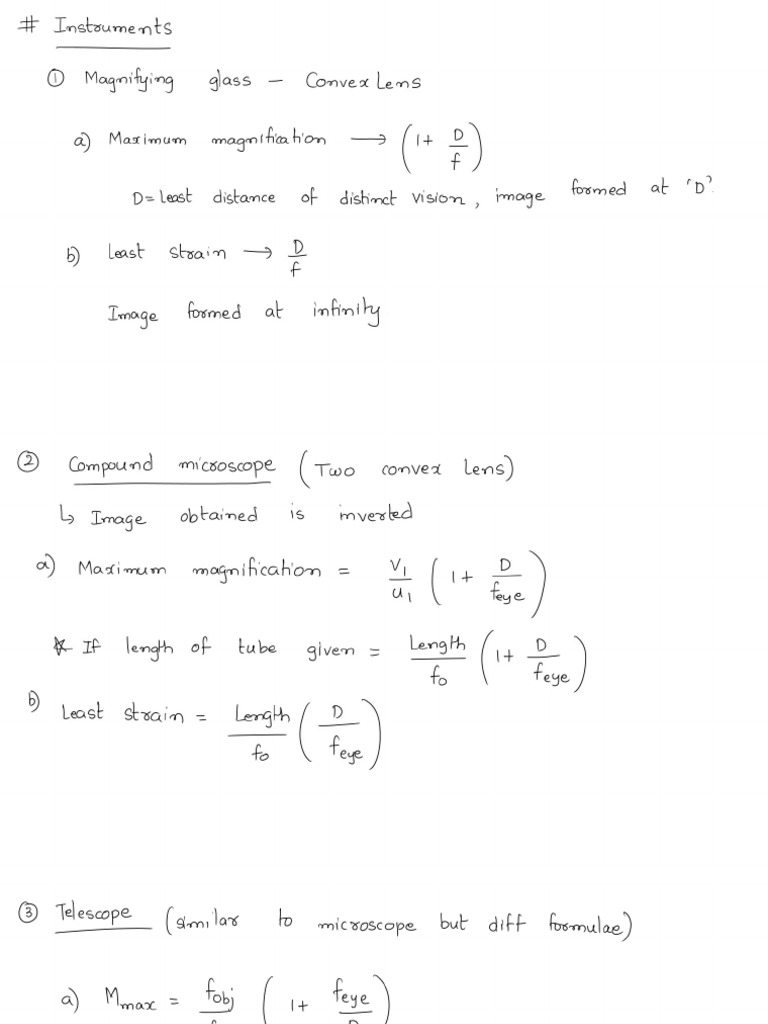 # Instruments
① Magnifying glass — Convex Lens
a) Maximum magnification → (1+ D/f)
D = Least distance of distinct vision, image formed at 'D'.
b) Least strain → D/f
Image formed at infinity
② Compound microscope (Two convex lens)
↳ Image obtained is inverted
a) Maximum magnification = V₁/u₁ (1+ D/feye)
* If length of tube given = Length/fo (1+ D/feye)
b) Least strain = Length/fo (D/feye)
③ Telescope (similar to microscope but diff formulae)
a) Mmax = fobj (1+ feye